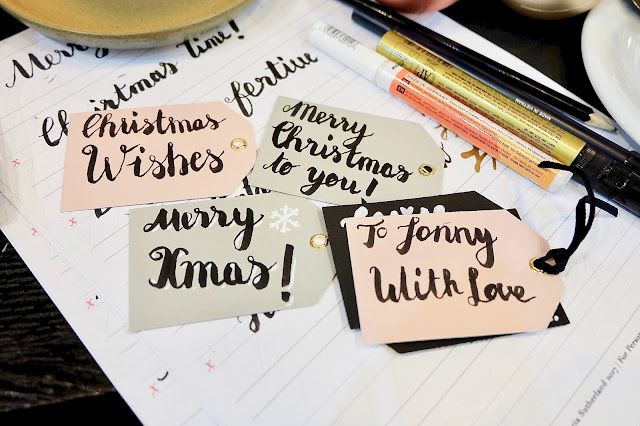 Merry
Christmas Time!
festive
Christmas
Wishes
Merry
Christmas
to you!
Merry
Xmas!
To Jonny
With Love
MADE IN VIETNAM
Sutherland 2017 | For Person